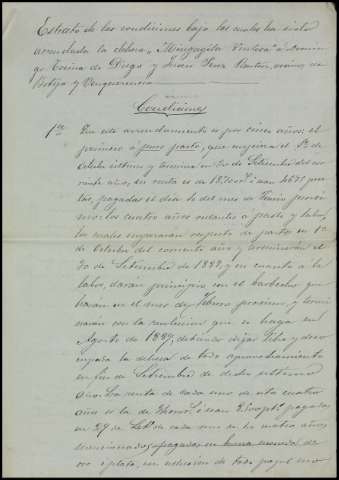 Estracto de las condiciones bajo las cuales ha sido
arrendada la dehesa "Minguijila Entera" á Domin
go Tovina de Diego y Juan Sanz Martin, vecinos de
Botija y Benquerencia
Condiciones
1ª Que este arrendamiento es por cinco años; el
primero á puro pasto, que empieza el 1º de
Octubre último y termina en 30 de Setiembre del cor
riente año, su renta es de
tas, pagadas el dia 1º del mes de Junio procsi
mo: los cuatro años restantes á pasto y labor,
los cuales empezarán respecto de pastos en 1º
de Octubre del corriente año y terminarán el
30 de Setiembre de 1889, y en cuanto á la
labor, darán principio con el barbecho que
harán en el mes de Febrero procsimo, y termi
narán con la recoleccion que se haga en
Agosto de 1889, debiendo dejar libre y deso
cupada la dehesa de todo aprovechamiento
en fin de Setiembre de dicho último
año. La renta de cada uno de estos cuatro
años es la de pagadas
en 29 de de cada uno de los cuatro años
mencionados, pagadas en buena moneda de
oro ó plata, con esclusion de todo papel mo